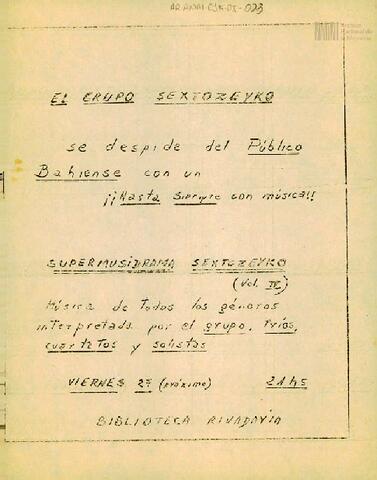 EL GRUPO SEXTOZEYKO
se despide del Público
Bahiense con un
¡¡Hasta Siempre con música!!
SUPERMUSIDRAMA SEXTOZEYKO
(Vol. IV)
Música de todos los géneros
interpretada por el grupo, tríos,
cuartetos y solistas
VIERNES 27 (próximo) 21hs
BIBLIOTECA RIVADAVIA